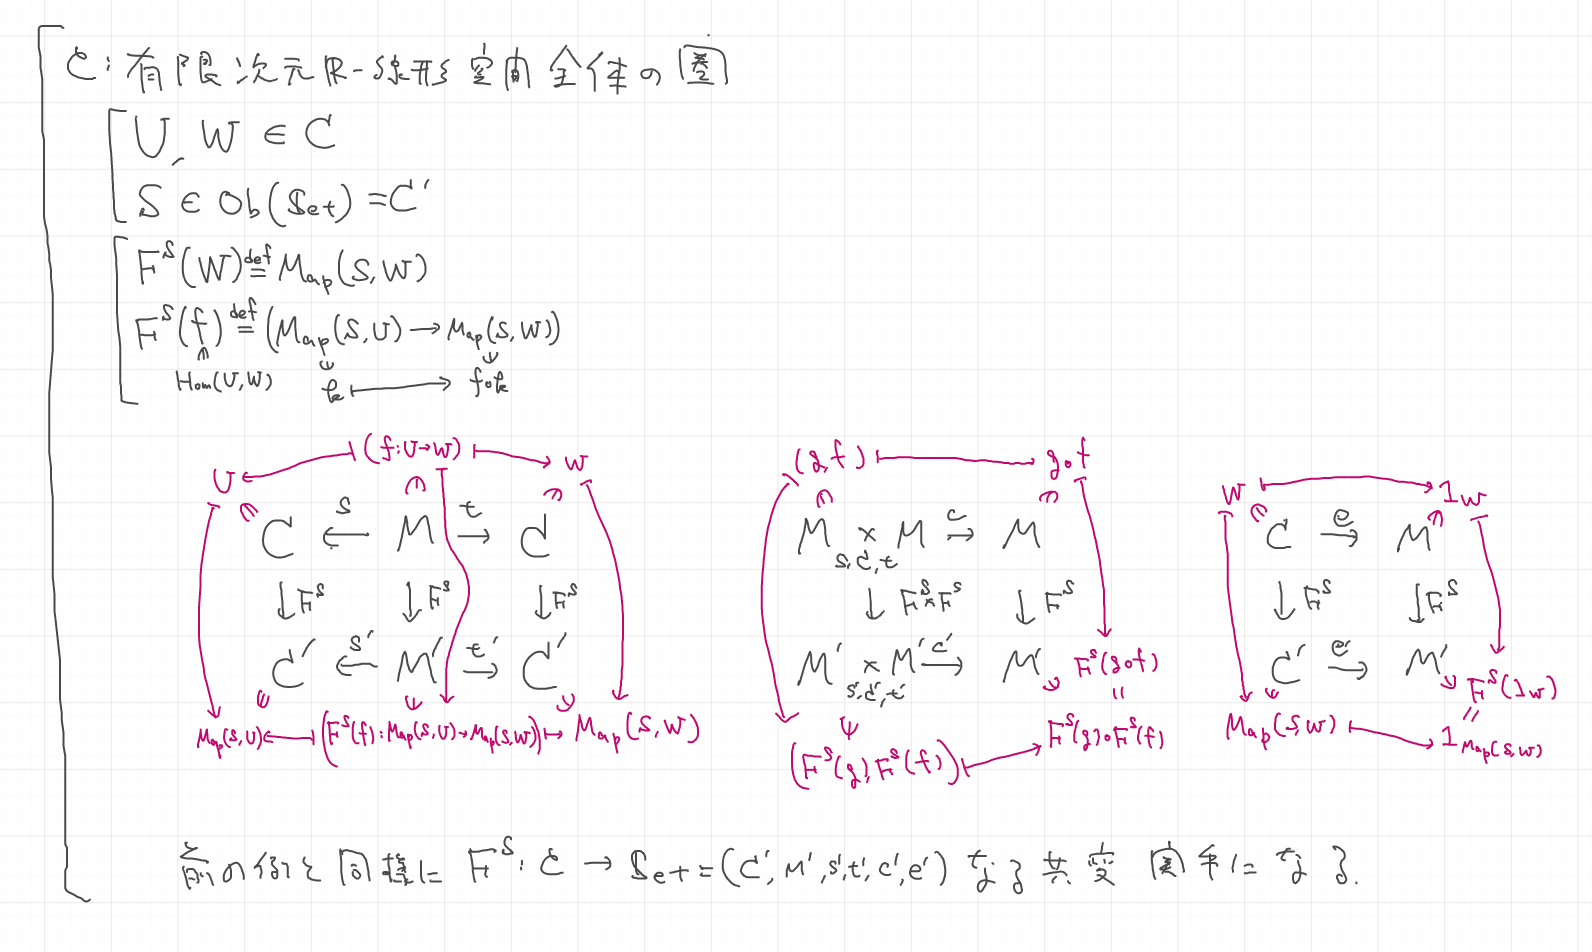 𝒞：有限次元ℝ-線形空間全体の圏
U, W ∈ C
S ∈ Ob(Set) = C'
F^S(W) =^def Map(S, W)
F^S(f) =^def (Map(S, U) → Map(S, W))
Hom(U, W) k ↦ f∘k
U ↤ (f: U→W) ↦ W
C ←s M →t C
↓F^S ↓F^S ↓F^S
C' ←s' M' →t' C'
Map(S, U) ↤ (F^S(f): Map(S, U) → Map(S, W)) ↦ Map(S, W)
(g, f) ↦ g∘f
M × M →c M
s, C, t
↓F^S×F^S ↓F^S
M' × M' →c' M'
s', C', t'
F^S(g∘f)
=
(F^S(g), F^S(f)) ↦ F^S(g)∘F^S(f)
W ↦ 1_W
C →e M
↓F^S ↓F^S
C' →e' M'
F^S(1_W)
=
Map(S, W) ↦ 1_Map(S, W)
前の例と同様に F^S: 𝒞 → Set = (C', M', s', t', c', e') なる共変関手になる.